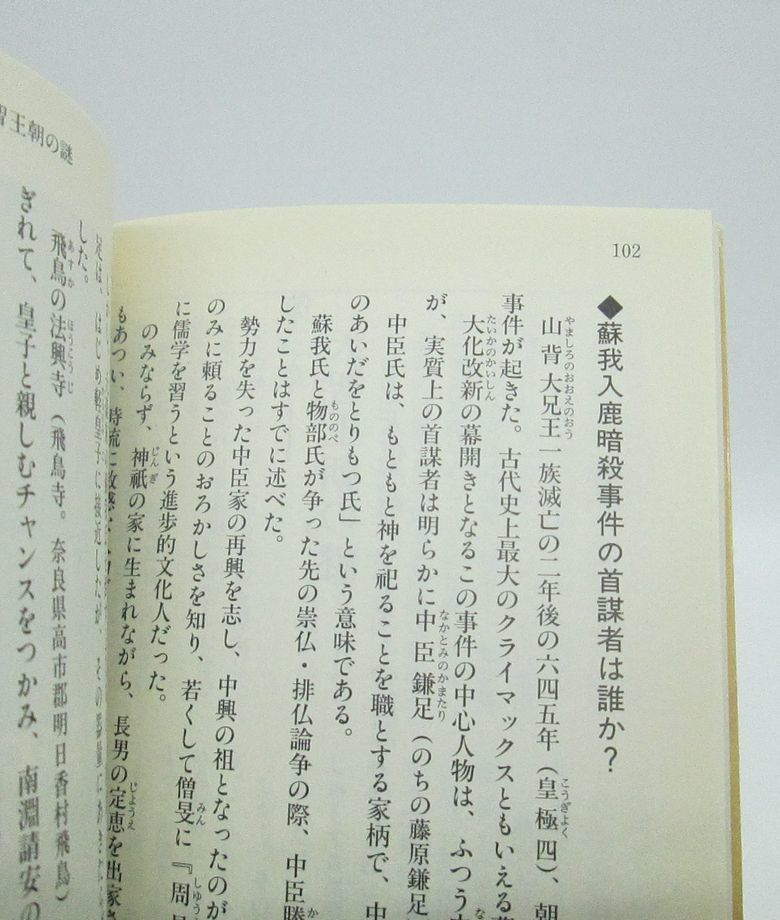 102
◆蘇我入鹿暗殺事件の首謀者は誰か？
やましろのおおえのおう こうぎよく
山背大兄王一族滅亡の二年後の六四五年（皇極四）、朝
事件が起きた。古代史上最大のクライマックスともいえる
たいかのかいしん
大化改新の幕開きとなるこの事件の中心人物は、ふつう
なかとみのかまたり
が、実質上の首謀者は明らかに中臣鎌足（のちの藤原鎌足
中臣氏は、もともと神を祀ることを職とする家柄で、中
のあいだをとりもつ氏」という意味である。
もののべ
蘇我氏と物部氏が争った先の崇仏・排仏論争の際、中臣勝
したことはすでに述べた。
勢力を失った中臣家の再興を志し、中興の祖となったのが
のみに頼ることのおろかしさを知り、若くして僧旻に『周
みん しゆう
に儒学を習うという進歩的文化人だった。
じんぎ じようえ
のみならず、神祇の家に生まれながら、長男の定恵を出家さ
もあつい、時流に敏感な
はじめ軽皇子に接近したが、その器量に
した。
あすか ほうこうじ
飛鳥の法興寺（飛鳥寺。奈良県高市郡明日香村飛鳥）
ぎれて、皇子と親しむチャンスをつかみ、南淵請安の
王朝の謎